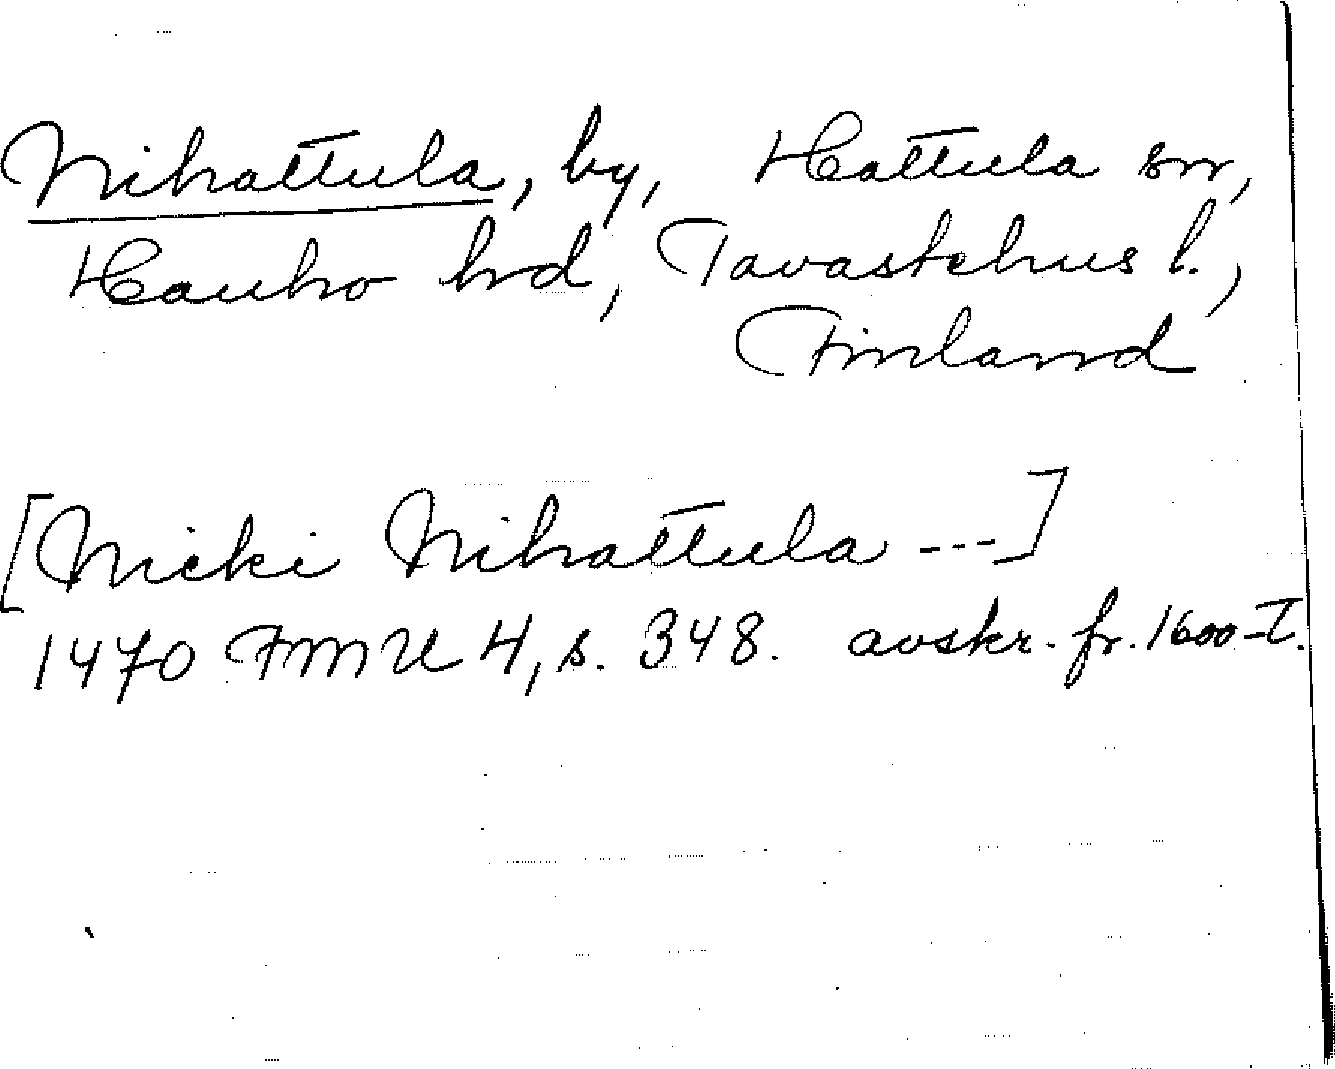 Nihattula, by, Hattula sn,
Hauho hd, Tavastehus l.,
Finland
[Nicki Nihattula ---]
1470 FMU 4, s. 348. avskr. fr. 1600-t.